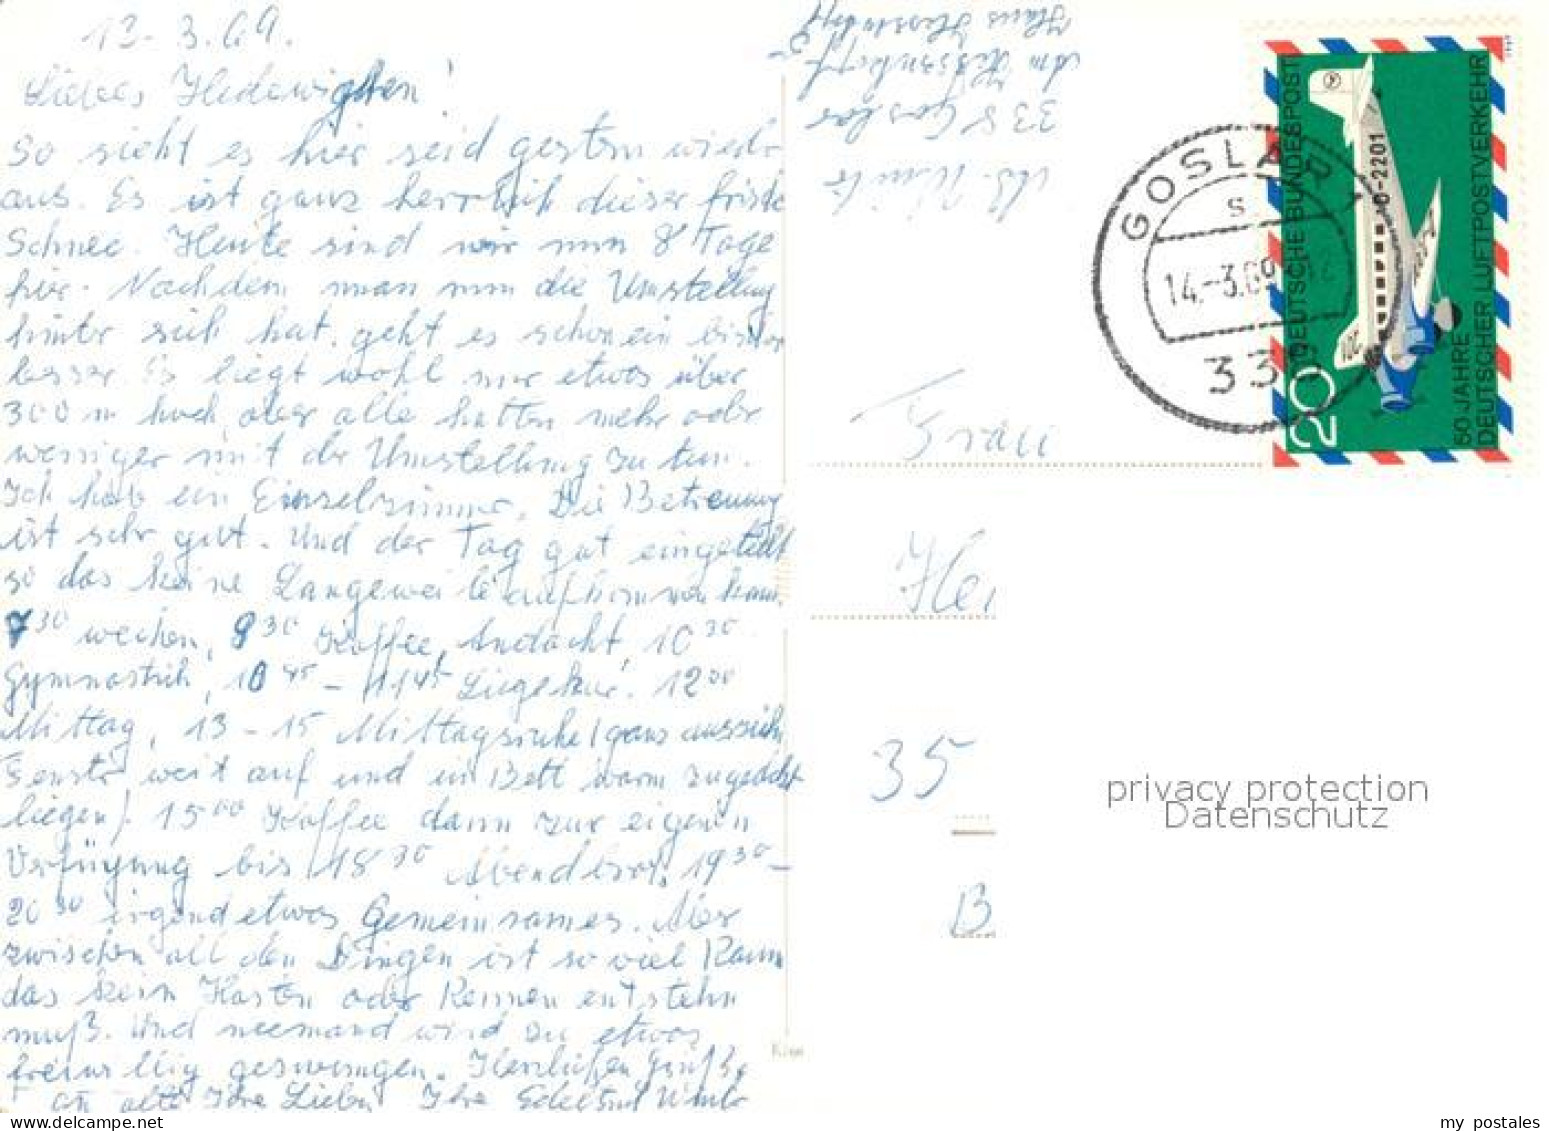 13. 3. 69.
Liebes Hedewigchen!
So sieht es hier seid gestern wieder
aus. Es ist ganz herrlich dieser frische
Schnee. Heute sind wir nun 8 Tage
hier. Nachdem man nun die Umstellung
hinter sich hat, geht es schon ein bischen
besser. Es liegt wohl nur etwas über
300 m hoch, aber alle hatten mehr oder
weniger mit der Umstellung zu tun.
Ich habe ein Einzelzimmer. Die Betreuung
ist sehr gut. Und der Tag gut eingeteilt
so das keine Langeweile aufkommen kann.
7 30 wecken, 8 30 Kaffee, Andacht, 10 30
Gymnastik, 10 45 - 11 45 Liegekur. 12 00
Mittag, 13 - 15 Mittagsruhe (ganz ausziehn
Fenster weit auf und in Bett warm zugedeckt
liegen). 15 00 Kaffee dann zur eigenen
Verfügung bis 18 30 Abendbrot. 19 30 -
20 30 irgend etwas Gemeinsames. Aber
zwischen all den Dingen ist so viel Raum
das kein Hasten oder Rennen entstehn
muß. Und niemand wird zu etwas
freiwillig geswungen. Herzlichen Grüße
an alle Ihre Lieben Ihre
33 8 Goslar
Haus Hessenkopf
Frau
Hei
35
B
GOSLAR 1
s
14.-3.69
33
DEUTSCHE BUNDESPOST
20
50 JAHRE
DEUTSCHER LUFTPOSTVERKEHR
D-2201
privacy protection
Datenschutz
my postales